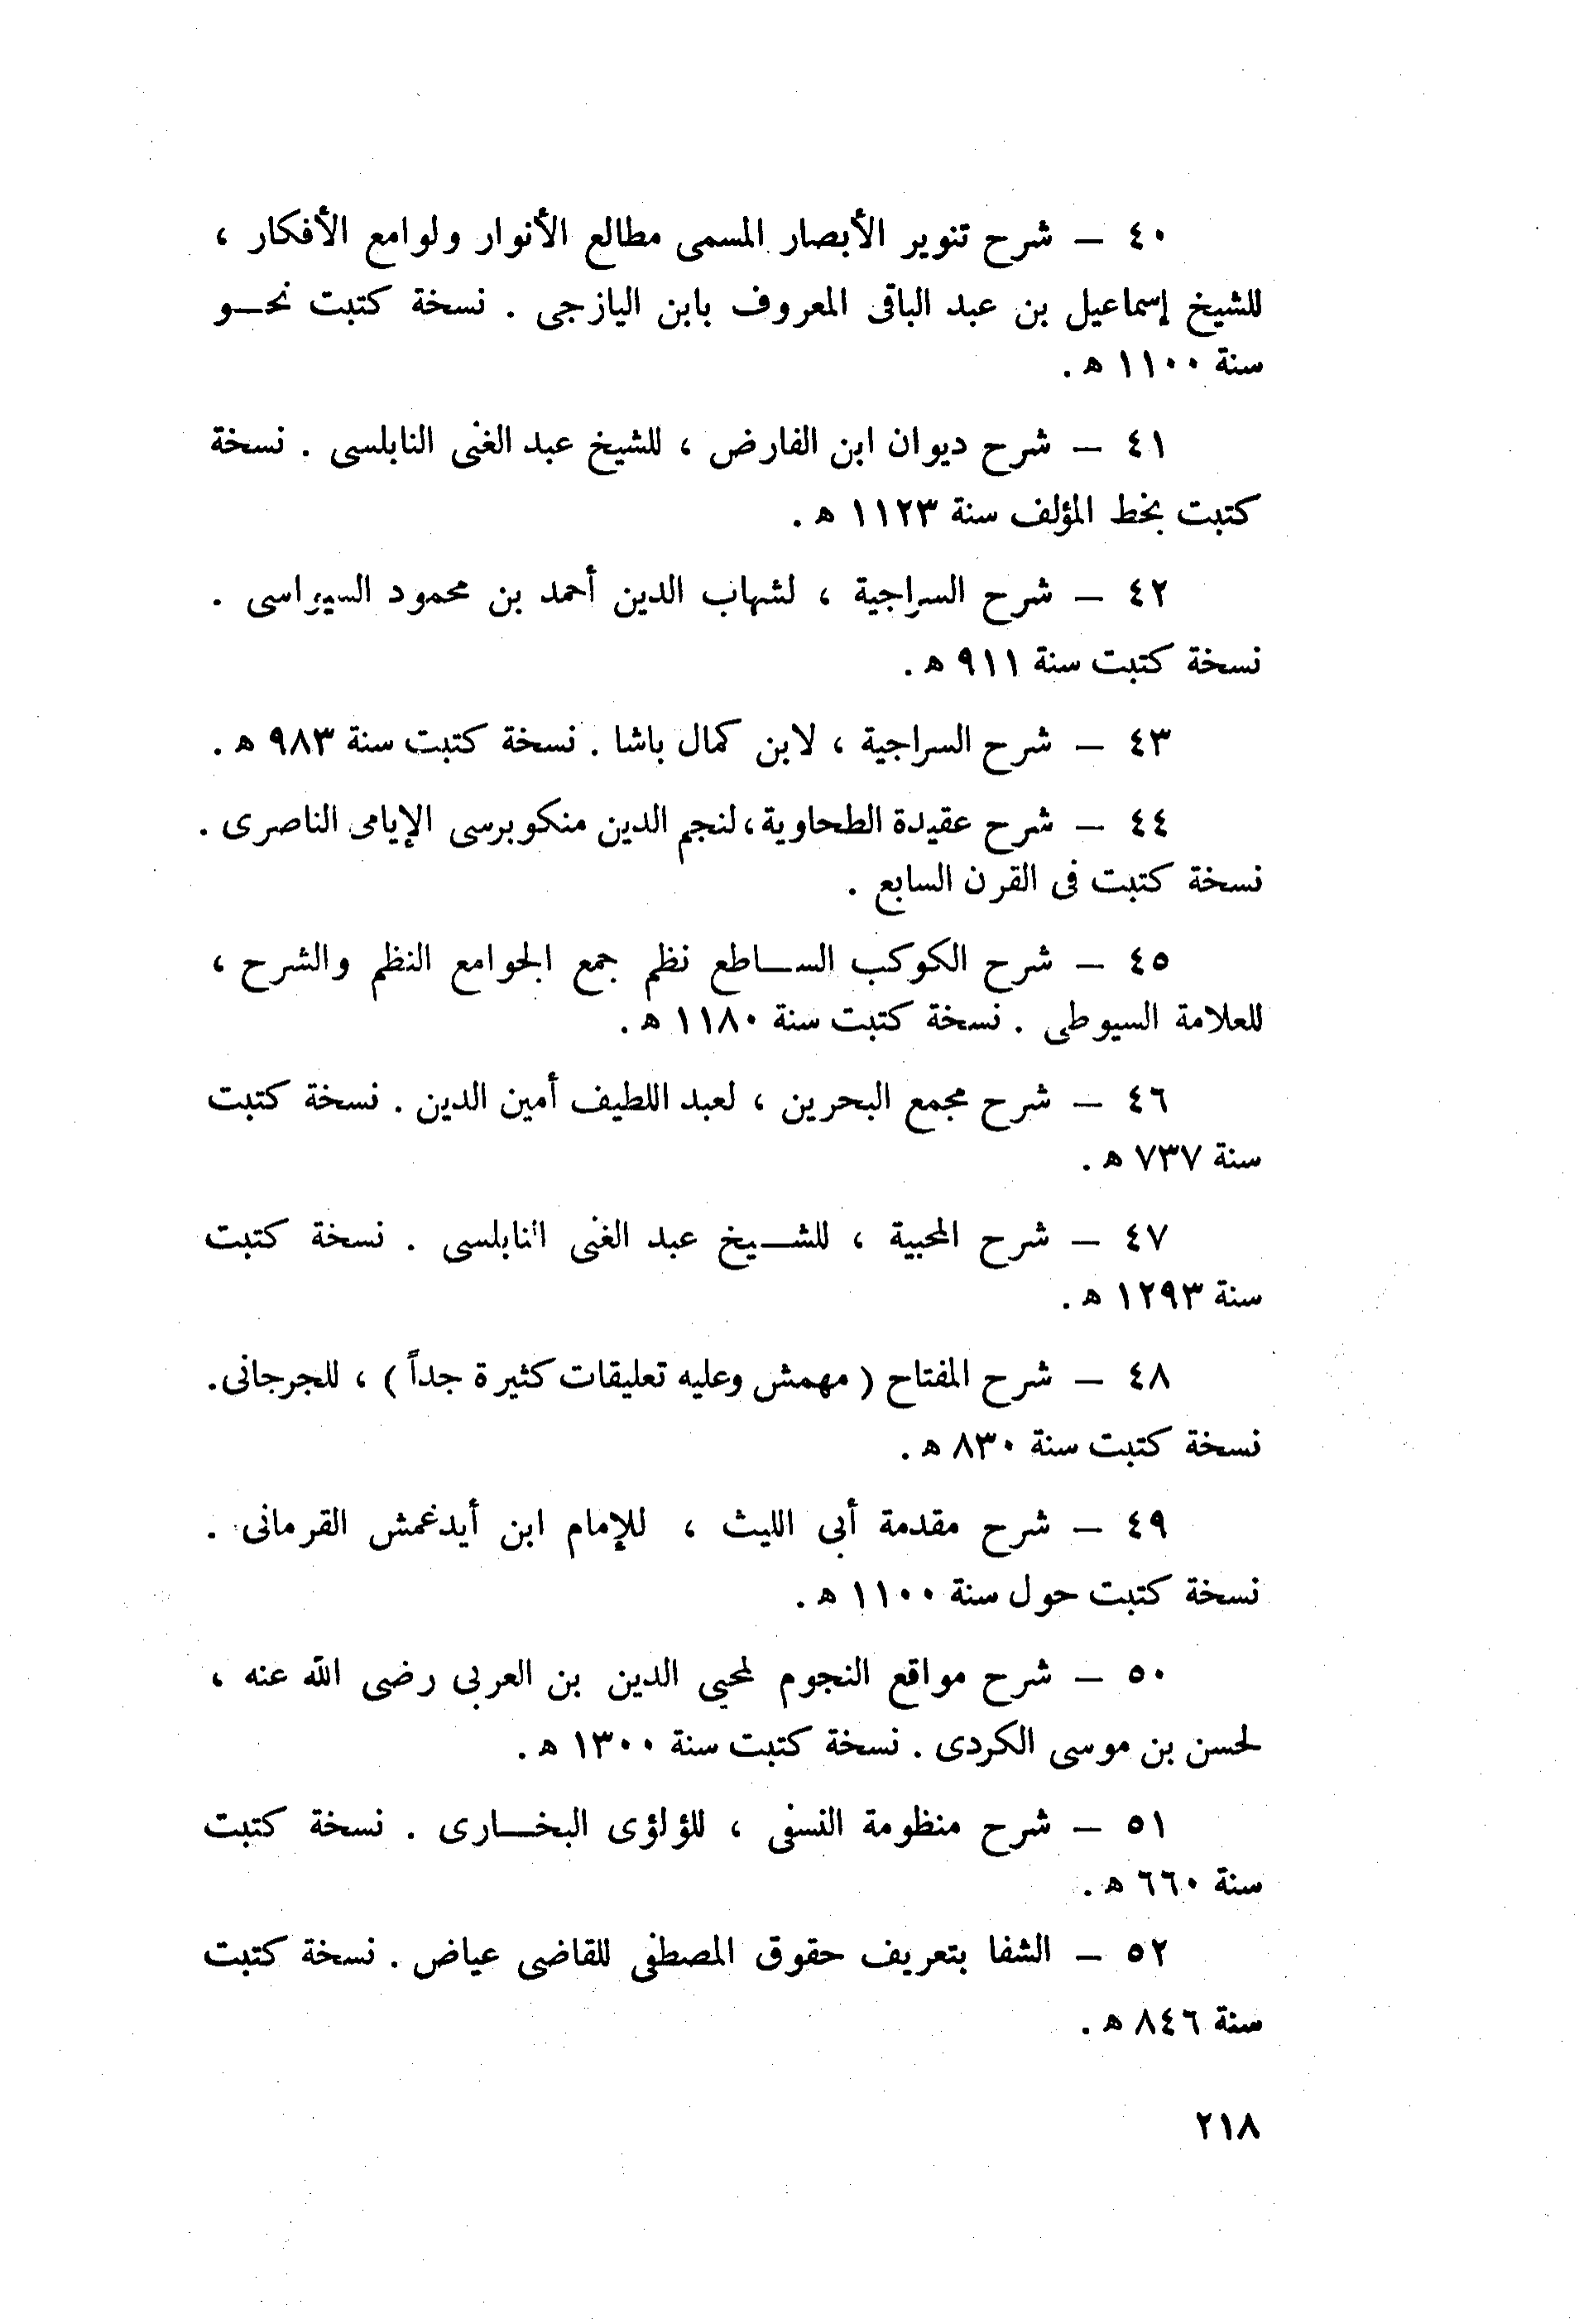 ٤٠ — شرح تنوير الأبصار المسمى مطالع الأنوار ولوامع الأفكار ،
للشيخ إسماعيل بن عبد الباقى المعروف بابن اليازجى . نسخة كتبت نحـو
سنة ١١٠٠ ه .
٤١ — شرح ديوان ابن الفارض ، للشيخ عبد الغنى النابلسى . نسخة
كتبت بخط المؤلف سنة ١١٢٣ ه .
٤٢ — شرح السراجية ، لشهاب الدين أحمد بن محمود السيراسى .
نسخة كتبت سنة ٩١١ ه .
٤٣ — شرح السراجية ، لابن كمال باشا . نسخة كتبت سنة ٩٨٣ ه .
٤٤ — شرح عقيدة الطحاوية ، لنجم الدين منكوبرسى الإيامى الناصرى .
نسخة كتبت فى القرن السابع .
٤٥ — شرح الكوكب الســاطع نظم جمع الجوامع النظم والشرح ،
للعلامة السيوطى . نسخة كتبت سنة ١١٨٠ ه .
٤٦ — شرح مجمع البحرين ، لعبد اللطيف أمين الدين . نسخة كتبت
سنة ٧٣٧ ه .
٤٧ — شرح المحبية ، للشــيخ عبد الغنى النابلسى . نسخة كتبت
سنة ١٢٩٣ ه .
٤٨ — شرح المفتاح ( مهمش وعليه تعليقات كثيرة جداً ) ، للجرجانى .
نسخة كتبت سنة ٨٣٠ ه .
٤٩ — شرح مقدمة أبى الليث ، للإمام ابن أيدغمش القرمانى .
نسخة كتبت حول سنة ١١٠٠ ه .
٥٠ — شرح مواقع النجوم لمحيى الدين بن العربى رضى الله عنه ،
لحسن بن موسى الكردى . نسخة كتبت سنة ١٣٠٠ ه .
٥١ — شرح منظومة النسفى ، للؤلؤى البخــارى . نسخة كتبت
سنة ٦٦٠ ه .
٥٢ — الشفا بتعريف حقوق المصطفى للقاضى عياض . نسخة كتبت
سنة ٨٤٦ ه .
٢١٨